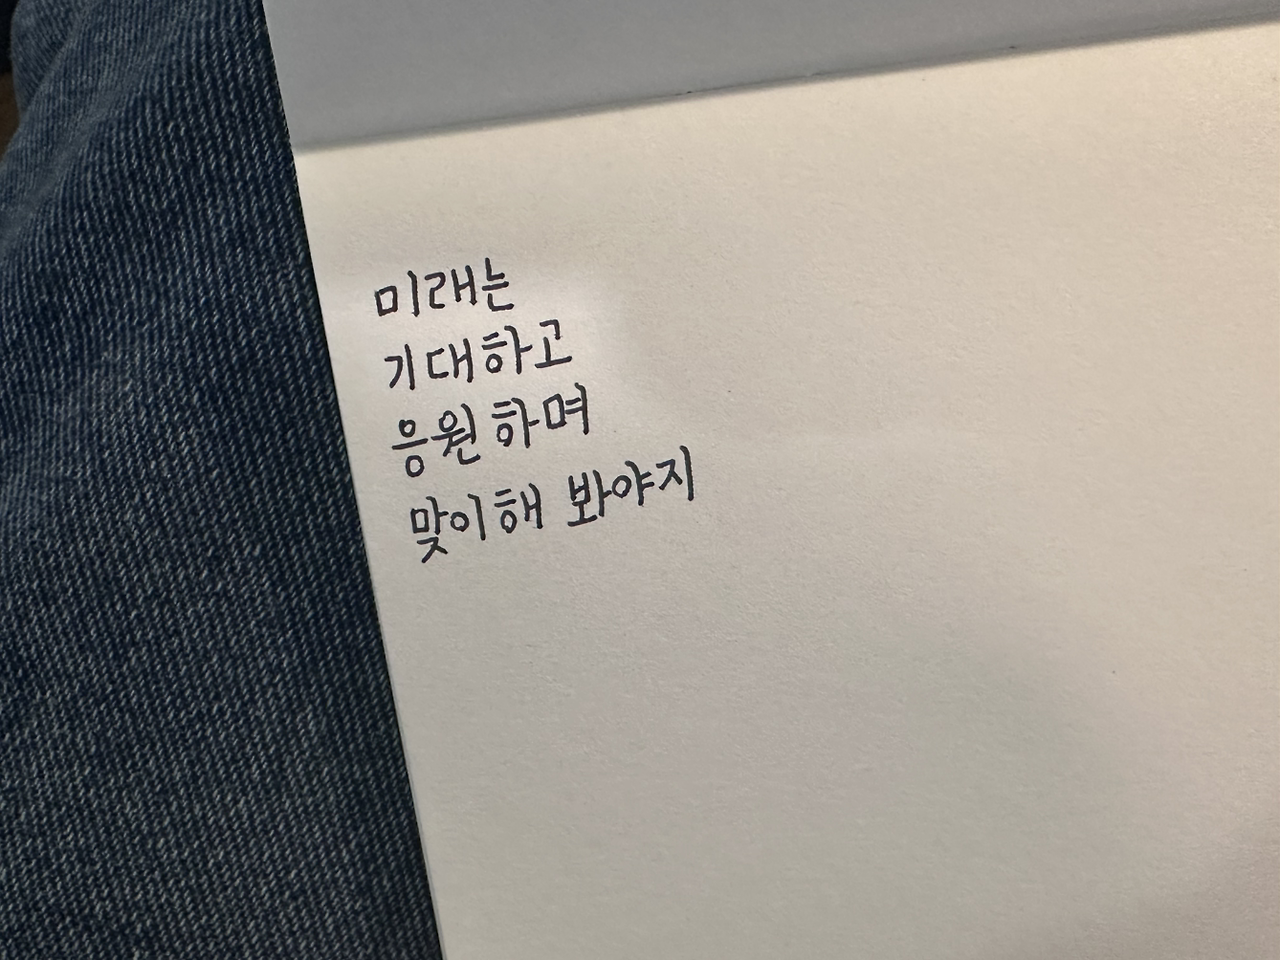 미래는
기대하고
응원하며
맞이해 봐야지